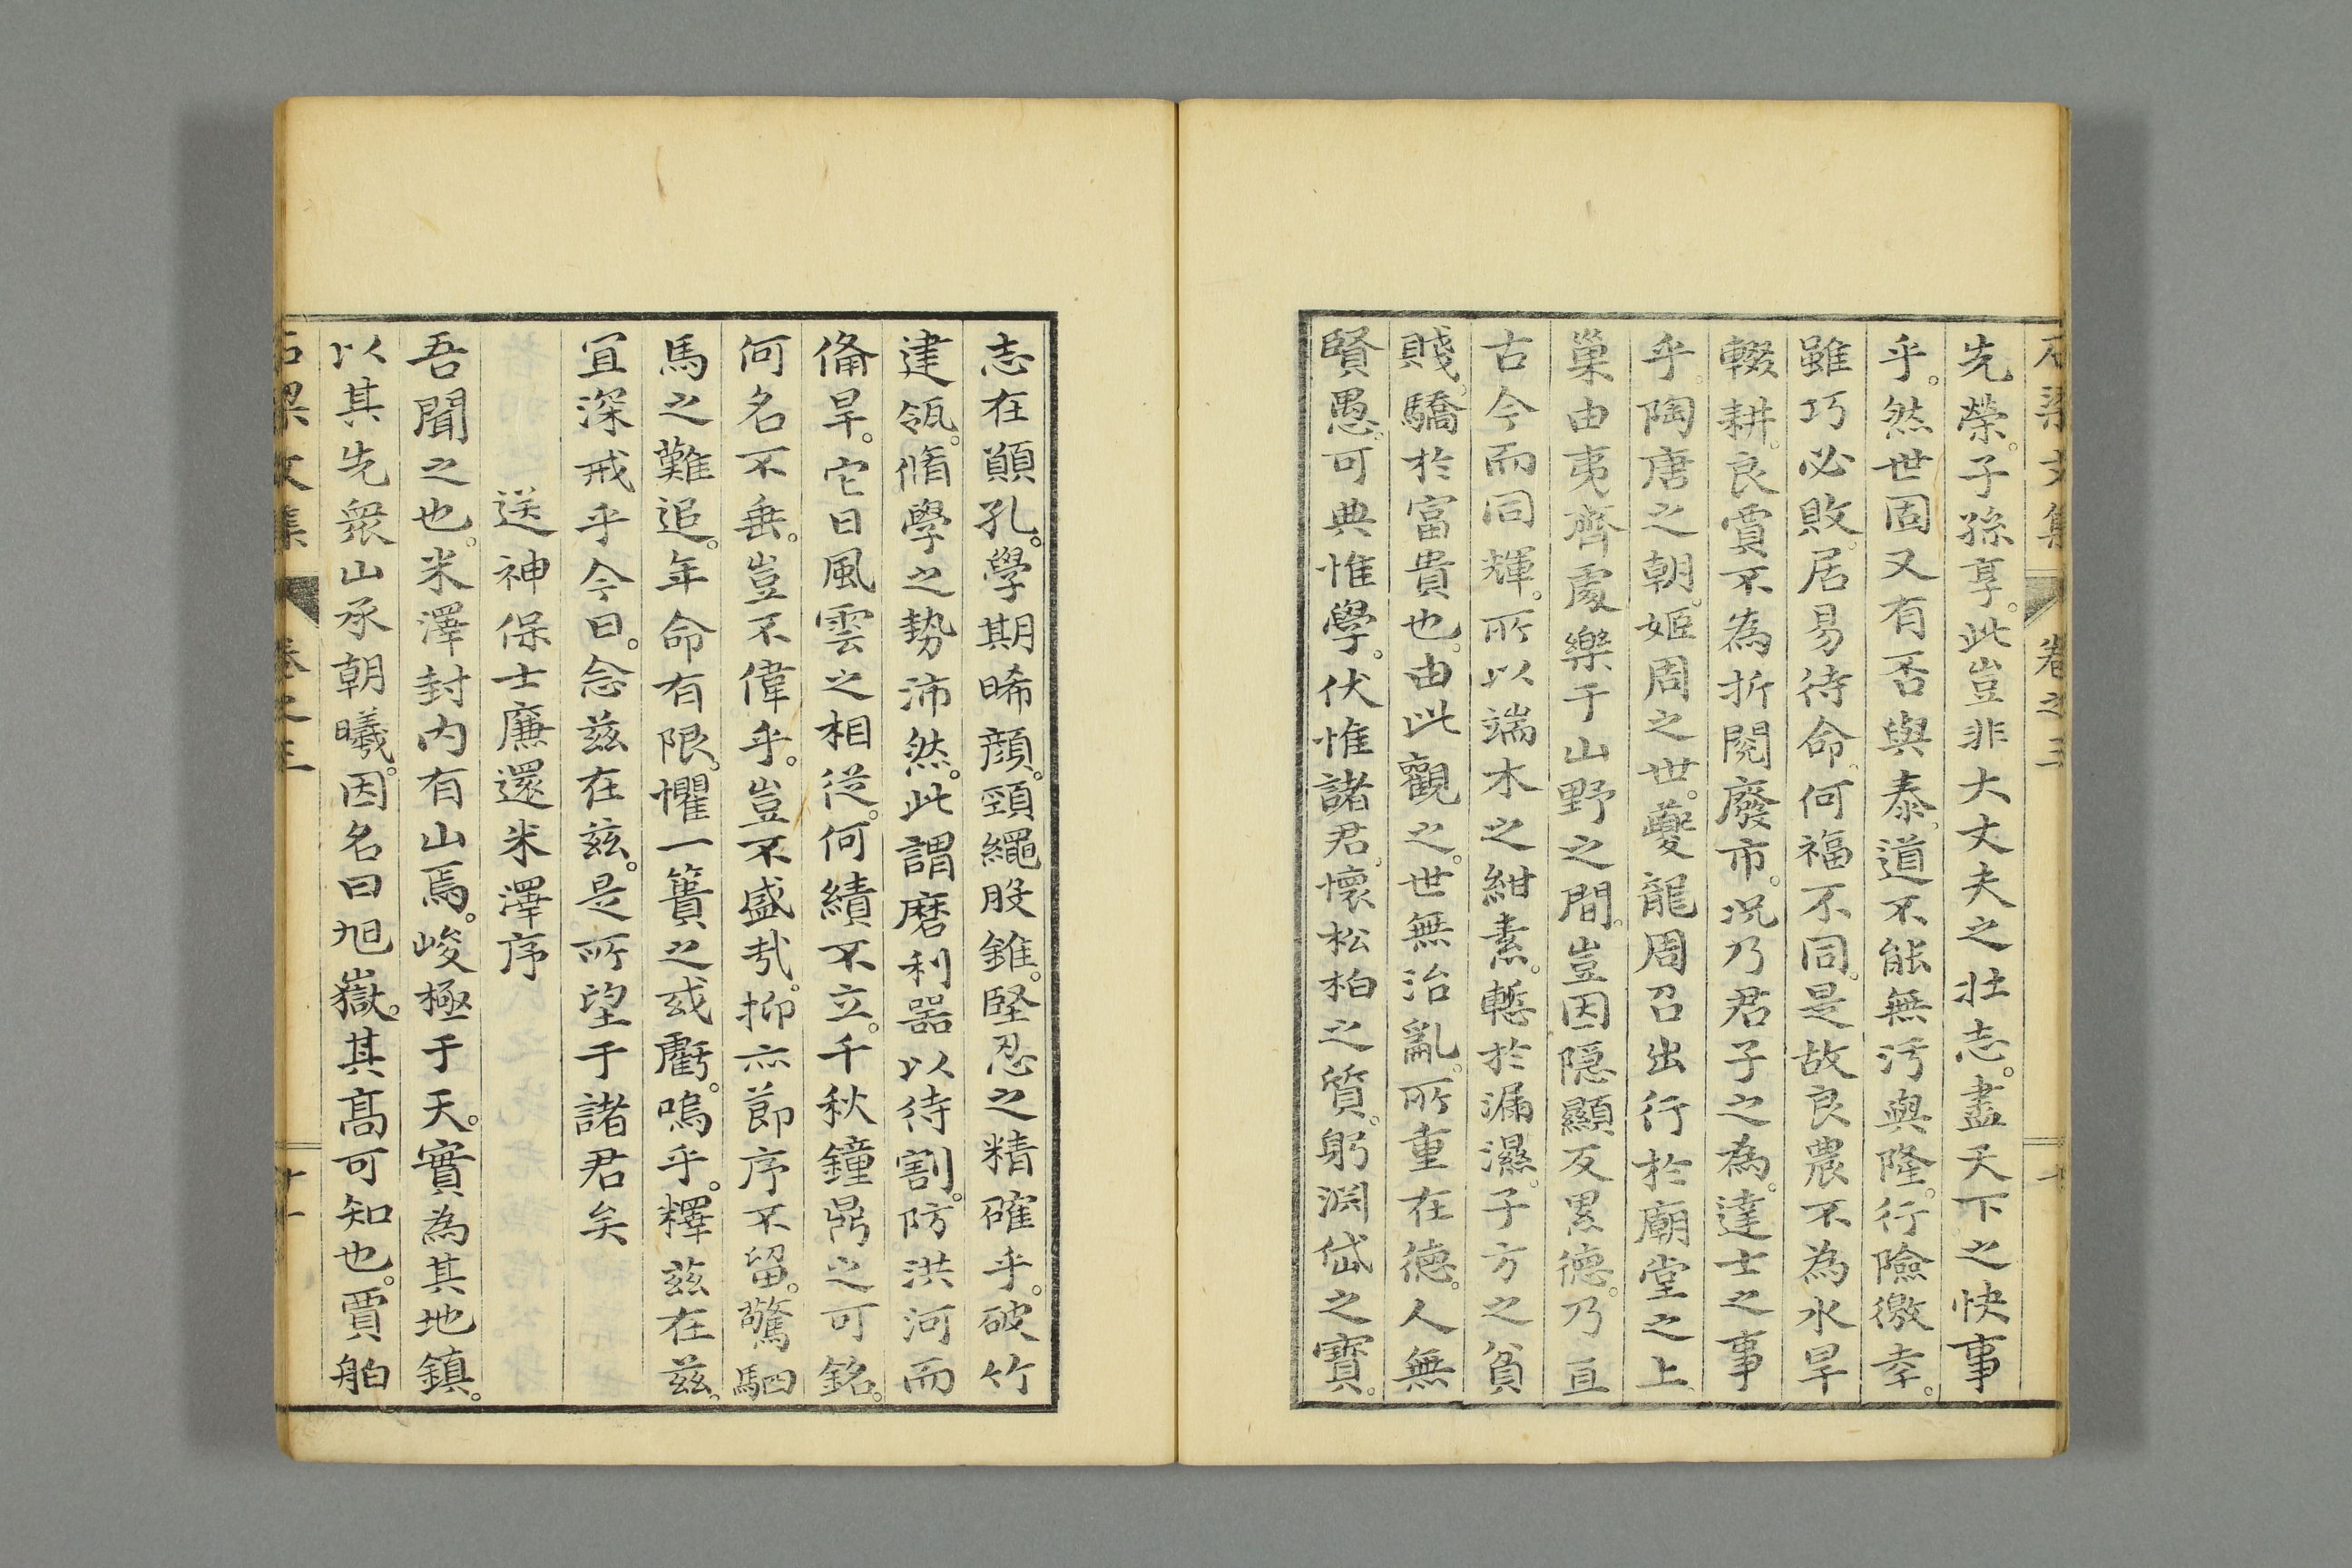 石梁文集 卷之三 十
先榮。子孫享。此豈非大丈夫之壯志。盡天下之快事
乎。然世固又有否與泰。道不能無汚與隆。行險徼幸。
雖巧必敗。居易待命。何福不同。是故良農不為水旱
輟耕。良賈不為折閱廢市。況乃君子之為。達士之事
乎。陶唐之朝。姬周之世。夔龍周召出行於廟堂之上。
巢由夷齊處樂于山野之間。豈因隠顯反累德。乃亘
古今而同輝。所以端木之紺素。慙於漏濕。子方之貧
賤。驕於富貴也。由此觀之。世無治亂。所重在德。人無
賢愚。可典惟學。伏惟諸君。懷松柏之質。躬淵岱之寶。
志在顚孔。學期晞顔。頸繩股錐。堅忍之精確乎。破竹
建瓴。脩學之勢沛然。此謂磨利噐以待割。防洪河而
備旱。它日風雲之相從。何績不立。千秋鐘鼎之可銘。
何名不垂。豈不偉乎。豈不盛哉。抑亦節序不留。驚駟
馬之難追。年命有限。懼一簣之或虧。嗚乎。釋茲在茲。
宜深戒乎今日。念茲在茲。是所望于諸君矣
送神保士廉還米澤序
吾聞之也。米澤封内有山焉。峻極于天。實為其地鎮。
以其先衆山承朝曦。因名曰旭嶽。其髙可知也。賈舶
石梁文集 卷之三 十一